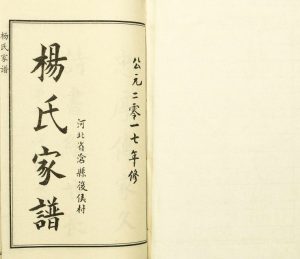 公元二零一七年修
河北省滄縣後村
楊氏家譜
楊氏家譜